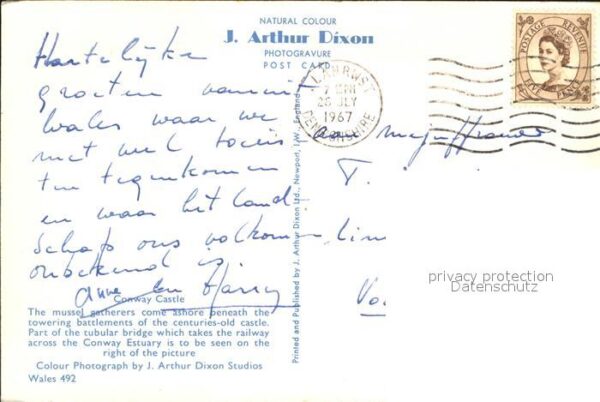 NATURAL COLOUR
J. Arthur Dixon
PHOTOGRAVURE
POST CARD
POSTAGE REVENUE
FIVE PENCE
LLANRWST
26 JLY
1967
DENBIGHSHIRE
Hartelijke
groeten vanuit
Wales waar we
niet veel toeris
ten tegenkomen
en waar het land
schap ons volkomen
onbekend is.
Anne en Harry
Conway Castle
The mussel gatherers come ashore beneath the
towering battlements of the centuries-old castle.
Part of the tubular bridge which takes the railway
across the Conway Estuary is to be seen on the
right of the picture
Colour Photograph by J. Arthur Dixon Studios
Wales 492
Printed and Published by J. Arthur Dixon Ltd., Newport, I.W., England
T.
privacy protection
Datenschutz